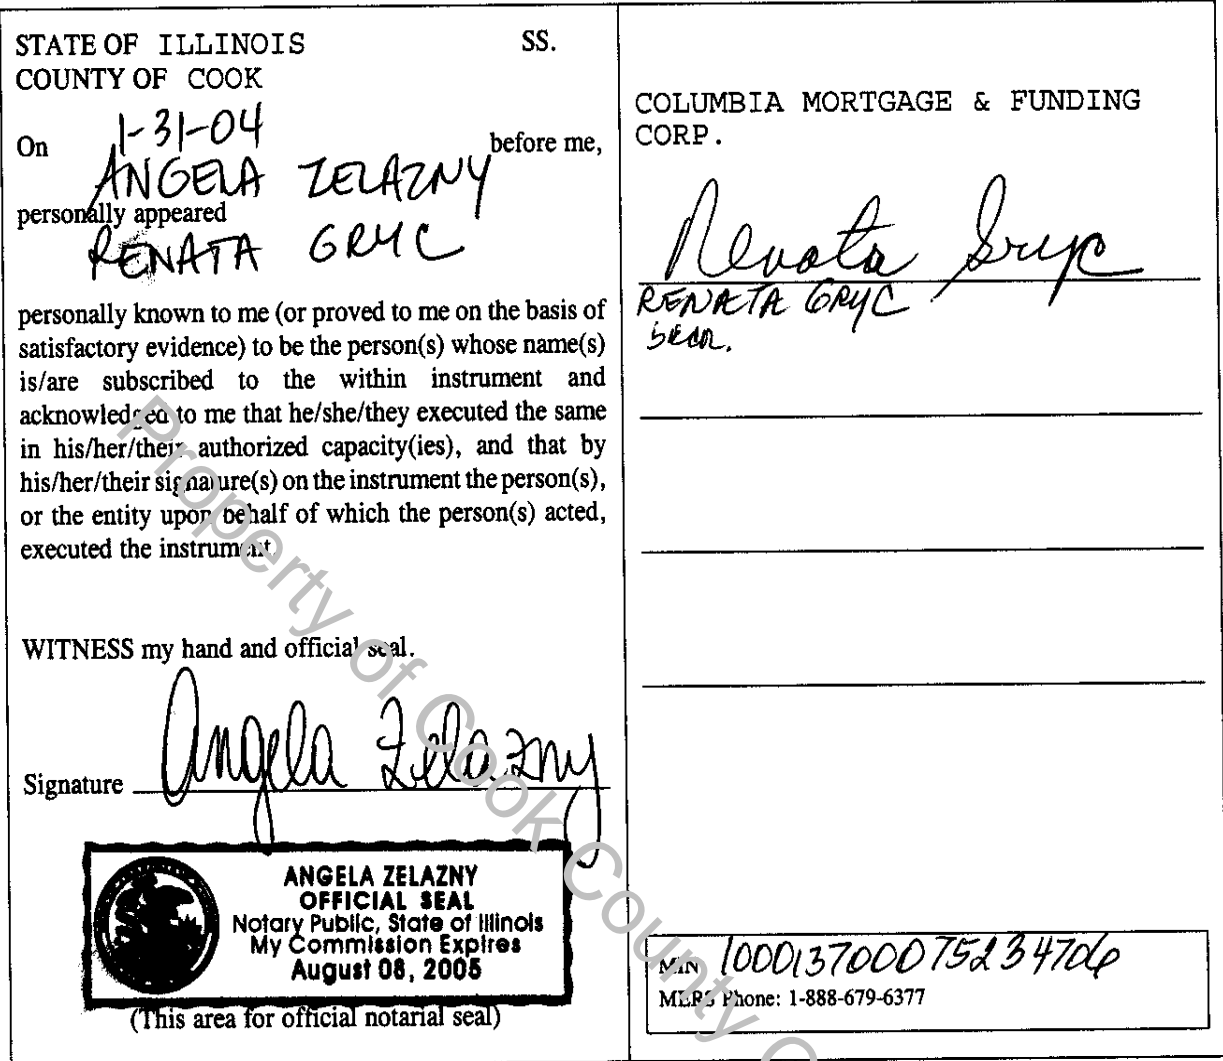 STATE OF ILLINOIS SS.
COUNTY OF COOK
On 1-31-04 before me,
ANGELA ZELAZNY
personally appeared
RENATA GRYC
personally known to me (or proved to me on the basis of
satisfactory evidence) to be the person(s) whose name(s)
is/are subscribed to the within instrument and
acknowledged to me that he/she/they executed the same
in his/her/their authorized capacity(ies), and that by
his/her/their signature(s) on the instrument the person(s),
or the entity upon behalf of which the person(s) acted,
executed the instrument.
WITNESS my hand and official seal.
Signature Angela Zelazny
ANGELA ZELAZNY
OFFICIAL SEAL
Notary Public, State of Illinois
My Commission Expires
August 08, 2005
(This area for official notarial seal)
COLUMBIA MORTGAGE & FUNDING
CORP.
Renata Gryc
RENATA GRYC
MIN 100013700075234706
MERS Phone: 1-888-679-6377
Property of Cook County